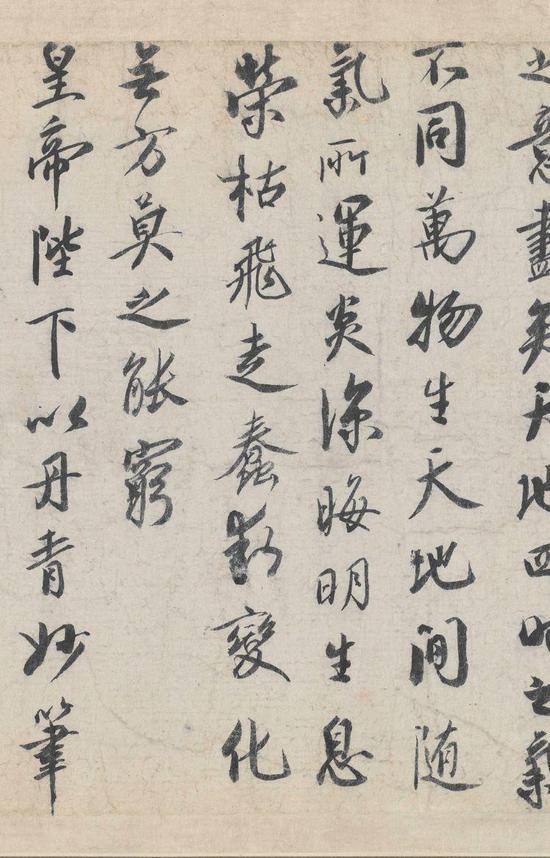 之意盡矣天地四時之氣
不同萬物生天地間隨
氣所運炎涼晦明生息
榮枯飛走蠢動變化
無方莫之能窮
皇帝陛下以丹青妙筆